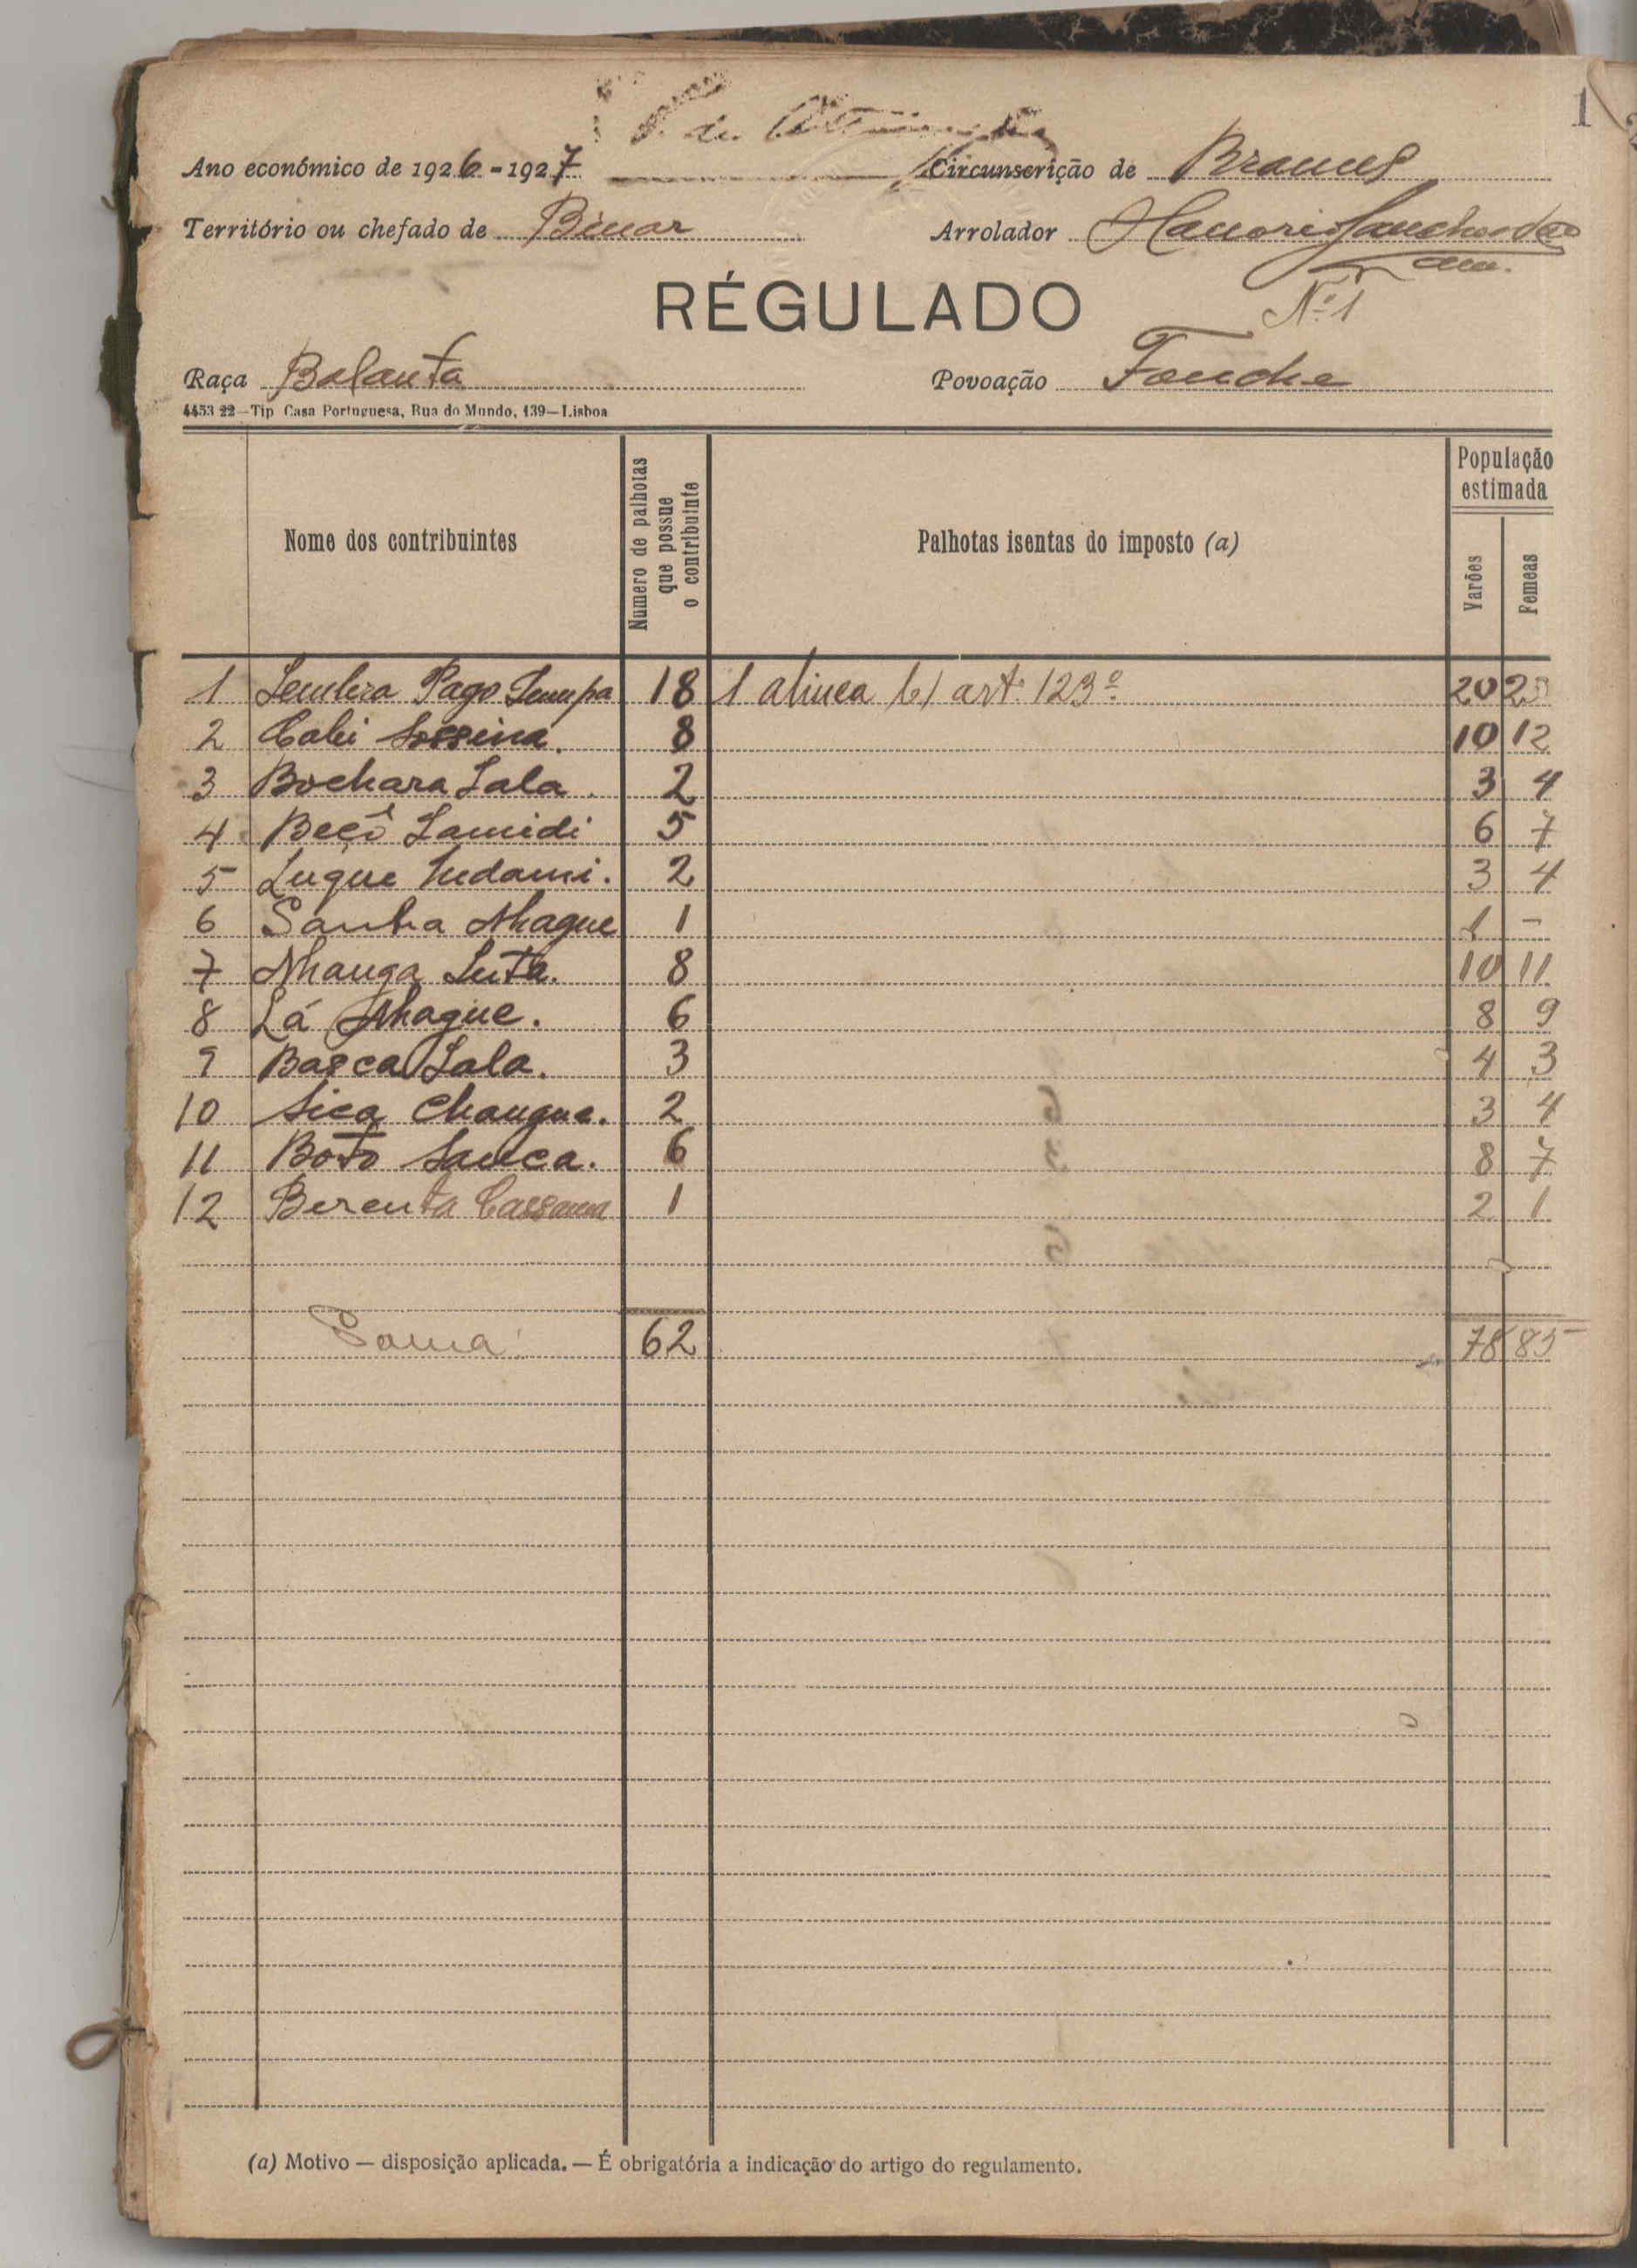 1
Ano económico de 1926-1927 Circunscrição de Brames
Território ou chefado de Binar Arrolador
RÉGULADO
Nº 1
Raça Balanta Povoação Fanche
4453 22—Tip Casa Portuguesa, Rua do Mundo, 139—Lisboa
Nome dos contribuintes Numero de palhotas que possue o contribuinte Palhotas isentas do imposto (a) População estimada Varões Femeas
1 Pago 18 1 alinea b) art. 123º 20
2 Cabi 8 10 12
3 Bochara Lala. 2 3 4
4 Beçô Lamidi 5 6 7
5 Luque 2 3 4
6 Sanha Nhague 1 1 -
7 Nhanga 8 10 11
8 Lá Nhague. 6 8 9
9 Basca Lala. 3 4 3
10 Sica Changue. 2 3 4
11 Botô Sanca. 6 8 7
12 Berenta Cassama 1 2 1
Soma: 62 78 85
(a) Motivo — disposição aplicada. — É obrigatória a indicação do artigo do regulamento.